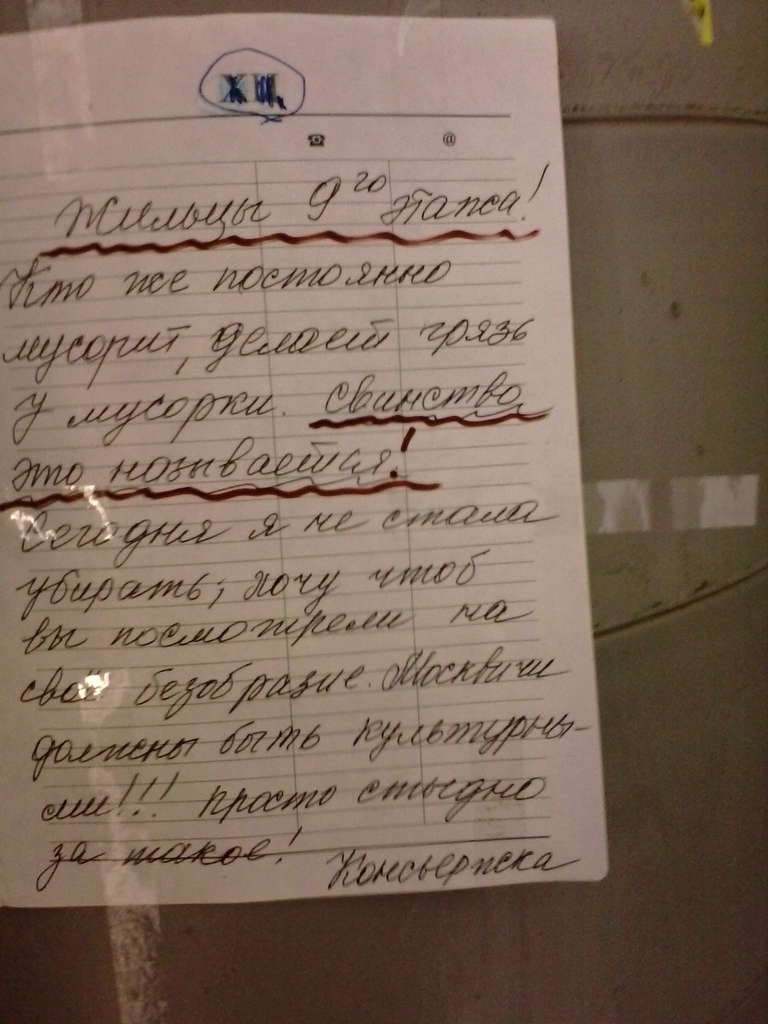 Жильцы 9го этажа!
Кто же постоянно
мусорит, делает грязь
у мусорки. Свинство
это называется!
Сегодня я не стала
убирать; хочу чтоб
вы посмотрели на
своё безобразие. Москвичи
должны быть культурны-
ми!!! просто стыдно
за такое!
Консьержка